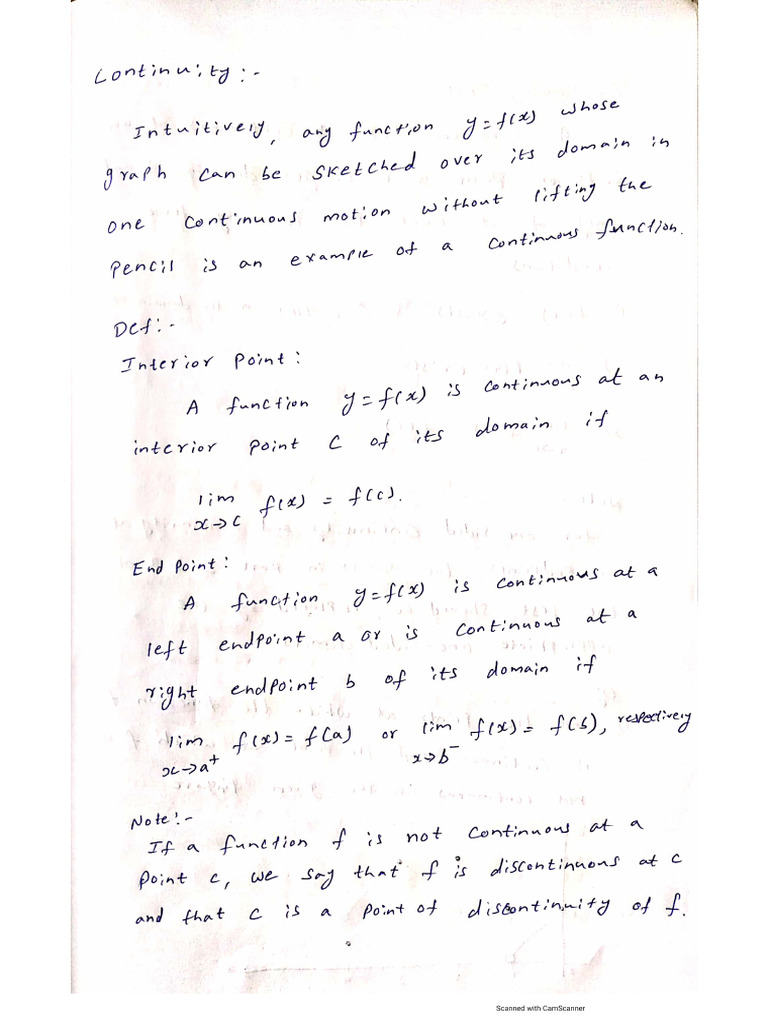 Continuity:-
Intuitively, any function y=f(x) whose
graph can be sketched over its domain in
one continuous motion without lifting the
pencil is an example of a continuous function.
Def:-
Interior Point:
A function y=f(x) is continuous at an
interior point c of its domain if
lim f(x) = f(c).
x→c
End Point:
A function y=f(x) is continuous at a
left endpoint a or is continuous at a
right endpoint b of its domain if
lim f(x) = f(a) or lim f(x) = f(b), respectively
x→a⁺ x→b⁻
Note:-
If a function f is not continuous at a
point c, we say that f is discontinuous at c
and that c is a point of discontinuity of f.
Scanned with CamScanner